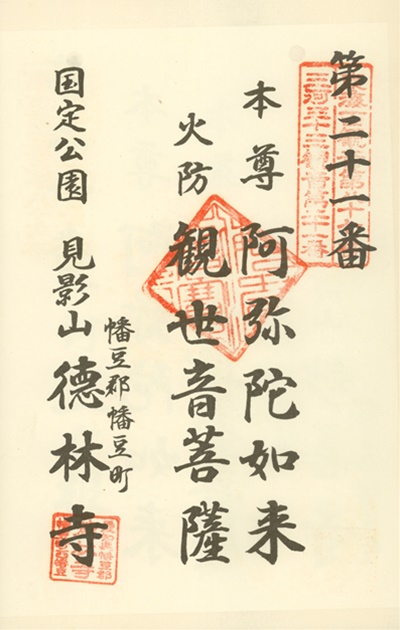 第二十一番
本尊 阿弥陀如来
火防 観世音菩薩
幡豆郡幡豆町
国定公園 見影山 德林寺